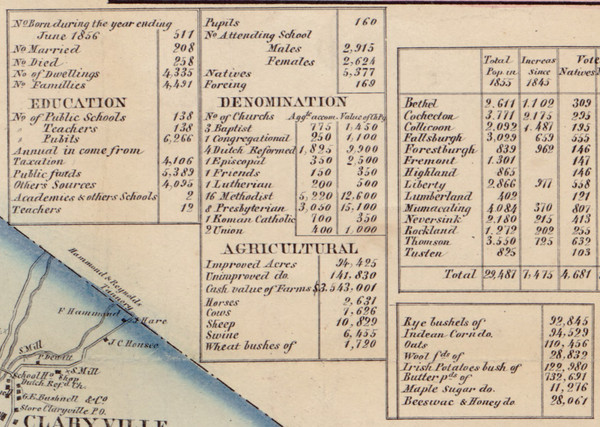 No Born during the year ending
June 1856 511
No Married 208
No Died 258
No of Dwellings 4,335
No Famillies 4,491
EDUCATION
No of Public Schools 138
" Teachers 138
" Pubils 6,266
Annual in come from
Taxation 4,106
Public funds 5,389
Others Sources 4,095
Academies & others Schools 2
Teachers 12
Pupils 160
No Attending School
Males 2,915
Females 2,624
Natives 5,377
Foreing 169
DENOMINATION
No of Churchs Agg.te accom. Value of Ch.Py
3 Baptist 775 1,450
1 Congregational 250 1,100
4 Dutch Reformed 1,825 9,900
1 Episcopal 350 2,500
1 Friends 150 350
1 Lutherian 200 500
16 Methodist 5,220 12,600
8 Presbyterian 3,050 15,100
1 Roman Catholic 700 350
2 Union 400 1,000
AGRICULTURAL
Improved Acres 94,425
Unimproved do. 141,830
Cash value of Farms $3,543,001
Horses 2,631
Cows 7,626
Sheep 10,829
Swine 6,455
Wheat bushes of 1,720
Total Pop in 1855 Increas since 1845 Vote
Natives
Bethel 2,611 1,102 309
Cochecton 3,771 2,175 295
Collicoon 2,092 1,487 195
Fallsburgh 3,029 659 555
Forestburgh 839 962 146
Fremont 1,301 147
Highland 865 146
Liberty 2,866 977 558
Lumberland 402 121
Mamacating 4,084 370 807
Neversink 2,180 215 413
Rockland 1,272 202 255
Thomson 3,550 725 632
Tusten 825 103
Total 29,487 7,475 4,681
Rye bushels of 92,845
Indean Corn do. 94,529
Oats 110,456
Wool Pds of 28,832
Irish Potatoes bush of 122,980
Butter Pds of 732,691
Maple Sugar do. 11,276
Beeswac & Honey do 28,061
Hammond & Reynolds
Tannery
F. Hammond
Hare
J.C. Housee
S. Mill
P. Dewitt
S. Mill
School Ho
Shop
Dutch Ref.d Ch.
G.E. Bushnell & Co
Store Claryville P.O.
CLARYVILLE